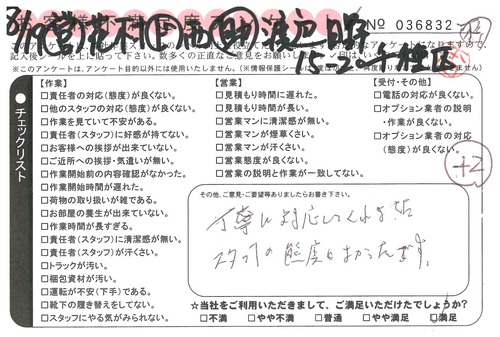 お客様
No 036832
このアンケートは
記入後シールを上に貼って下さい。数多くの正直なご意見をお願いします。
※このアンケートは、アンケート目的以外には使用いたしません。(※情報保護シールは
チェックリスト
【作業】
□責任者の対応(態度)が良くない。
□他のスタッフの対応(態度)が良くない。
□作業を見ていて不安がある。
□責任者(スタッフ)に好感が持てない。
□お客様への挨拶が出来ていない。
□ご近所への挨拶・気遣いが無い。
□作業開始前の内容確認がなかった。
□作業開始時間が遅れた。
□荷物の取り扱いが雑である。
□お部屋の養生が出来ていない。
□作業時間が長すぎる。
□責任者(スタッフ)に清潔感が無い。
□責任者(スタッフ)が汗くさい。
□トラックが汚い。
□梱包資材が汚い。
□運転が不安(下手)である。
□靴下の履き替えをしてない。
□スタッフにやる気がみられない。
【営業】
□見積もり時間に遅れた。
□見積もり時間が長い。
□営業マンに清潔感が無い。
□営業マンが煙草くさい。
□営業マンが汗くさい。
□営業態度が良くない。
□営業の説明と作業が一致してない。
【受付・その他】
□電話の対応が良くない。
□オプション業者の説明
・作業が良くない。
□オプション業者の対応
(態度)が良くない。
+2
その他、ご意見・ご要望等ありましたらお書き下さい。
丁寧に対応してくれた
スタッフの態度もよかったです。
☆当社をご利用いただきまして、ご満足いただけたでしょうか?
□不満 □やや不満 □普通 □やや満足 □満足